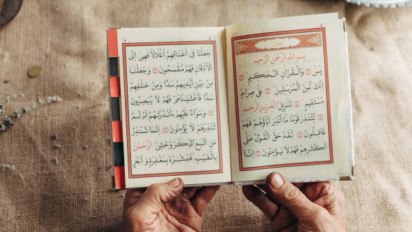 بِسْمِ اللّٰهِ الرَّحْمٰنِ الرَّحِيمِ
يٰسٓ وَالْقُرْاٰنِ الْحَكِيمِ
اِنَّكَ لَمِنَ الْمُرْسَلِينَ عَلٰى صِرَاطٍ
مُسْتَقِيمٍ تَنْزِيلَ الْعَزِيزِ الرَّحِيمِ
لِتُنْذِرَ قَوْمًا مَا اُنْذِرَ اٰبَاؤُهُمْ فَهُمْ
غَافِلُونَ لَقَدْ حَقَّ الْقَوْلُ عَلٰى
اَكْثَرِهِمْ فَهُمْ لَا يُؤْمِنُونَ اِنَّا
جَعَلْنَا فِى اَعْنَاقِهِمْ اَغْلَالًا فَهِىَ اِلَى
الْاَذْقَانِ فَهُمْ مُقْمَحُونَ وَجَعَلْنَا
مِنْ بَيْنِ اَيْدِيهِمْ سَدًّا وَمِنْ خَلْفِهِمْ
سَدًّا فَاَغْشَيْنَاهُمْ فَهُمْ لَا يُبْصِرُونَ
وَسَوَاءٌ عَلَيْهِمْ ءَاَنْذَرْتَهُمْ اَمْ لَمْ
تُنْذِرْهُمْ لَا يُؤْمِنُونَ اِنَّمَا تُنْذِرُ
مَنِ اتَّبَعَ الذِّكْرَ وَخَشِىَ الرَّحْمٰنَ
بِالْغَيْبِ فَبَشِّرْهُ بِمَغْفِرَةٍ وَاَجْرٍ